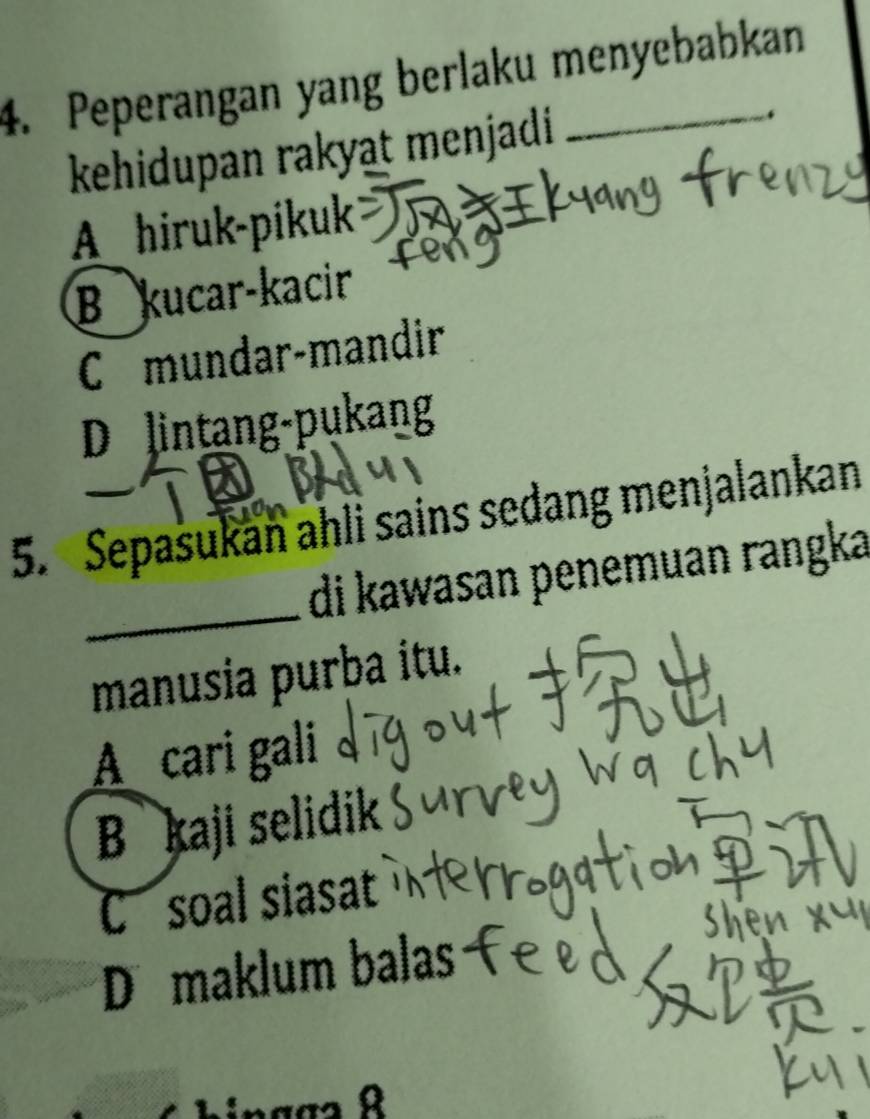 4. Peperangan yang berlaku menyebabkan
kehidupan rakyat menjadi ________.
A hiruk-pikuk 疯狂 kuang frenzy
feng
B kucar-kacir
C mundar-mandir
D lintang-pukang
一个团 队 dui
tuan
5. Sepasukan ahli sains sedang menjalankan
________ di kawasan penemuan rangka
manusia purba itu.
A cari gali dig out 挖出
wa chu
B kaji selidik survey
C soal siasat interrogation 审讯
shen xun
D maklum balas feed 反馈
kui
hingga 8